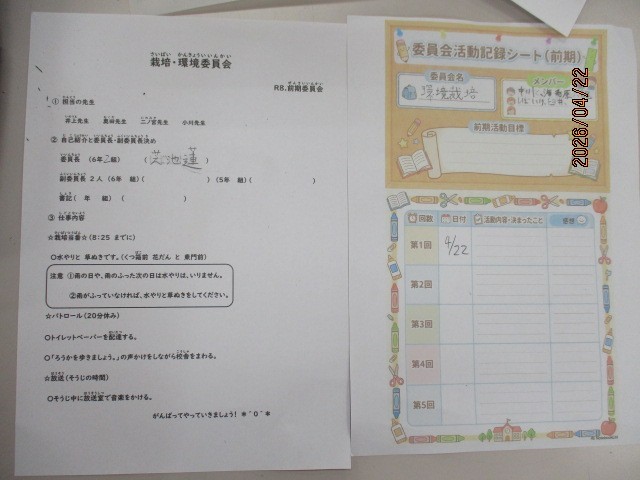 栽培・環境委員会
R8.前期委員会
① 担当の先生
井上先生 奥田先生 二ノ宮先生 小川先生
② 自己紹介と委員長・副委員長決め
委員長 (6年2組) ( 池蓮 )
副委員長 2人 (6年 組)( ) (5年 組)( )
書記( 年 組) ( )
③ 仕事内容
☆栽培当番☆(8:25 までに)
○水やりと 草ぬきです。(くつ箱前 花だん と 東門前)
注意 ①雨の日や、雨のふった次の日は水やりは、いりません。
②雨がふっていなければ、水やりと草ぬきをしてください。
☆パトロール(20分休み)
○トイレットペーパーを配達する。
○「ろうかを歩きましょう。」の声かけをしながら校舎をまわる。
☆放送(そうじの時間)
○そうじ中に放送室で音楽をかける。
がんばってやっていきましょう! *^0^*
委員会活動記録シート(前期)
委員会名
環境栽培
メンバー
前期活動目標
回数 日付 活動内容・決まったこと 感想
第1回 4/22
第2回
第3回
第4回
第5回
2026/04/22